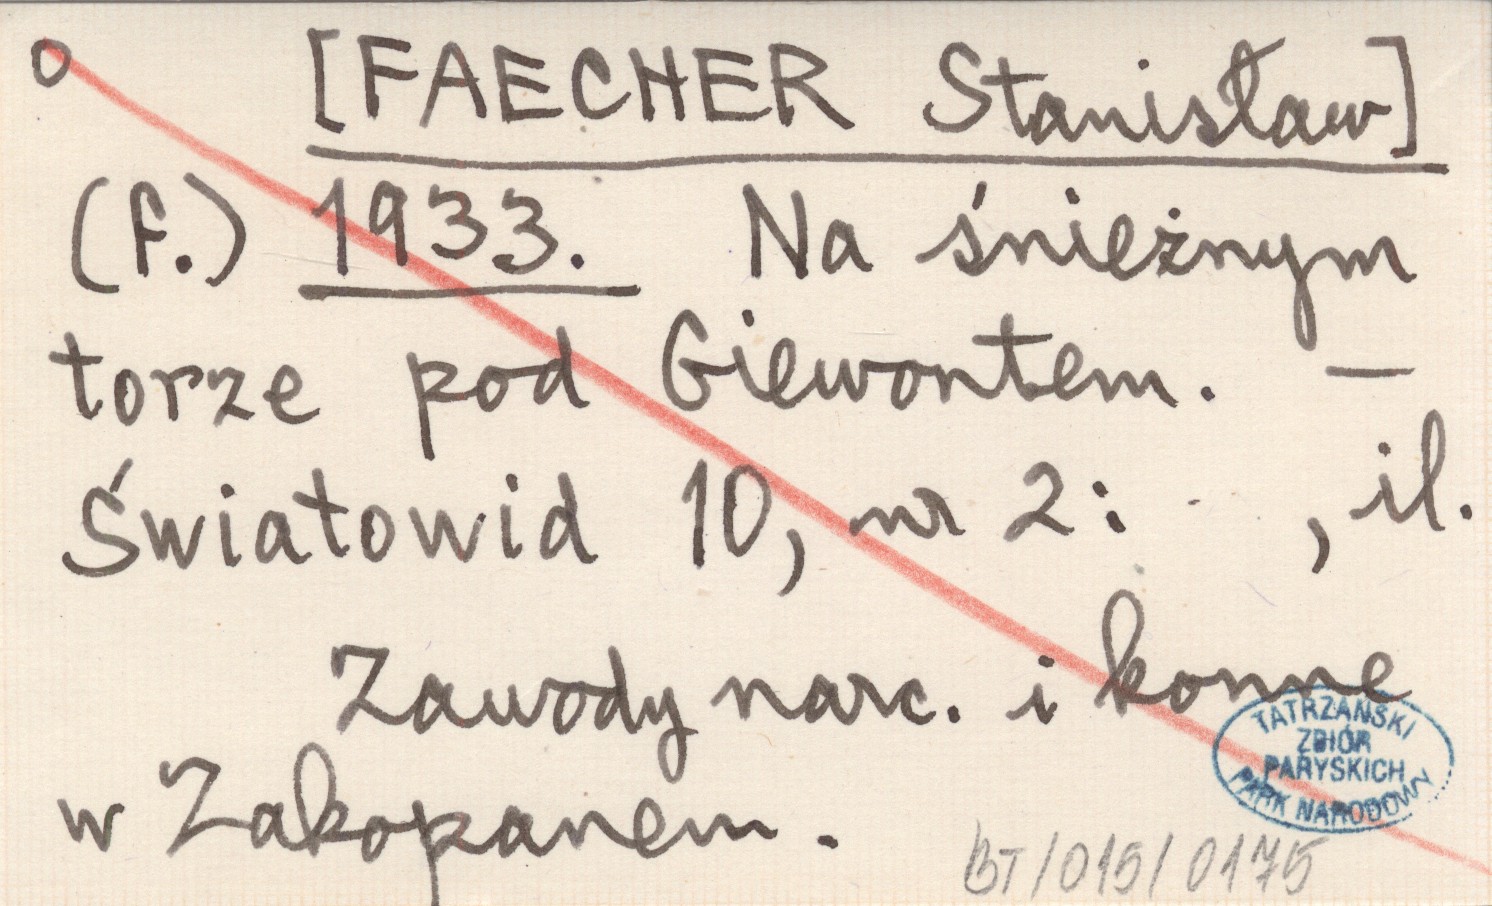 O [FAECHER Stanisław]
(f.) 1933. Na śnieżnym
torze pod Giewontem. —
Światowid 10, nr 2: , il.
Zawody narc. i konne
w Zakopanem.
TATRZAŃSKI
ZBIÓR
PARYSKICH
PARK NARODOWY
BT/015/0175